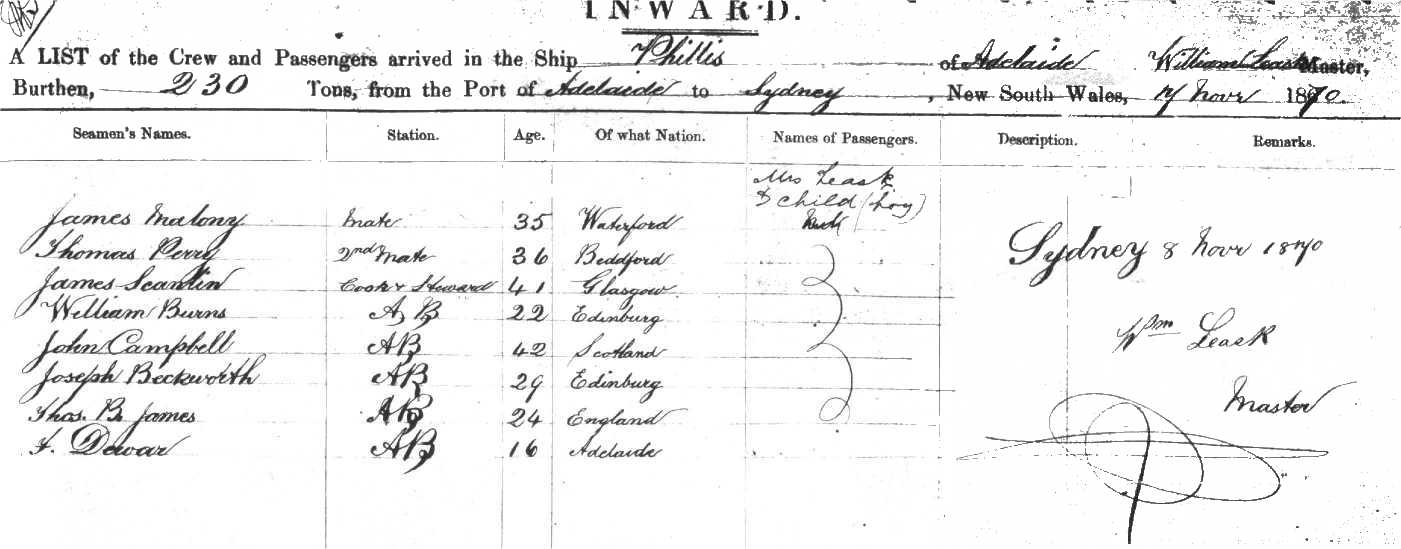 INWARD.
A LIST of the Crew and Passengers arrived in the Ship Phillis of Adelaide William Leask Master,
Burthen, 230 Tons, from the Port of Adelaide to Sydney, New South Wales, Novr 1870.
Seamen's Names. Station. Age. Of what Nation. Names of Passengers. Description. Remarks.
Mrs Leask
& child (boy)
James Malony Mate 35 Waterford
Thomas Perry 2nd Mate 36 Beddford Sydney 8 Novr 1870
James Scanlin Cook & Steward 41 Glasgow
William Burns AB 22 Edinburg
John Campbell AB 42 Scotland Wm Leask
Joseph Beckworth AB 29 Edinburg
Thos. B. James AB 24 England Master
F. Dewar AB 16 Adelaide